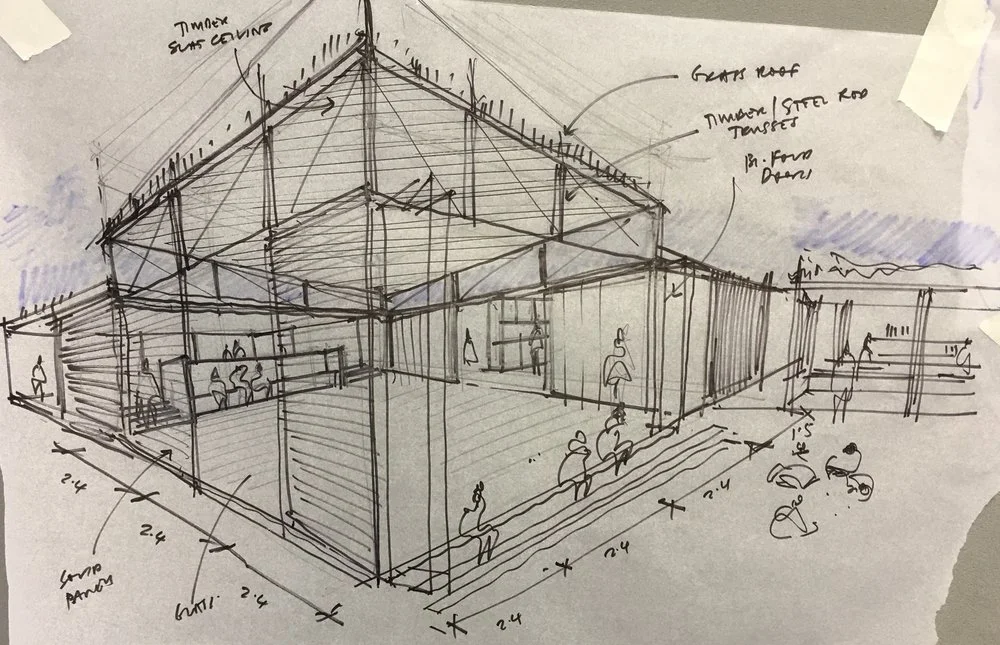 TIMBER
SLAT CEILING
GRASS ROOF
TIMBER/STEEL ROD
TRUSSES
BI-FOLD
DOORS
1.5
2.4
2.4
2.4
2.4
2.4
2.4
SOLID
PANELS
GLASS